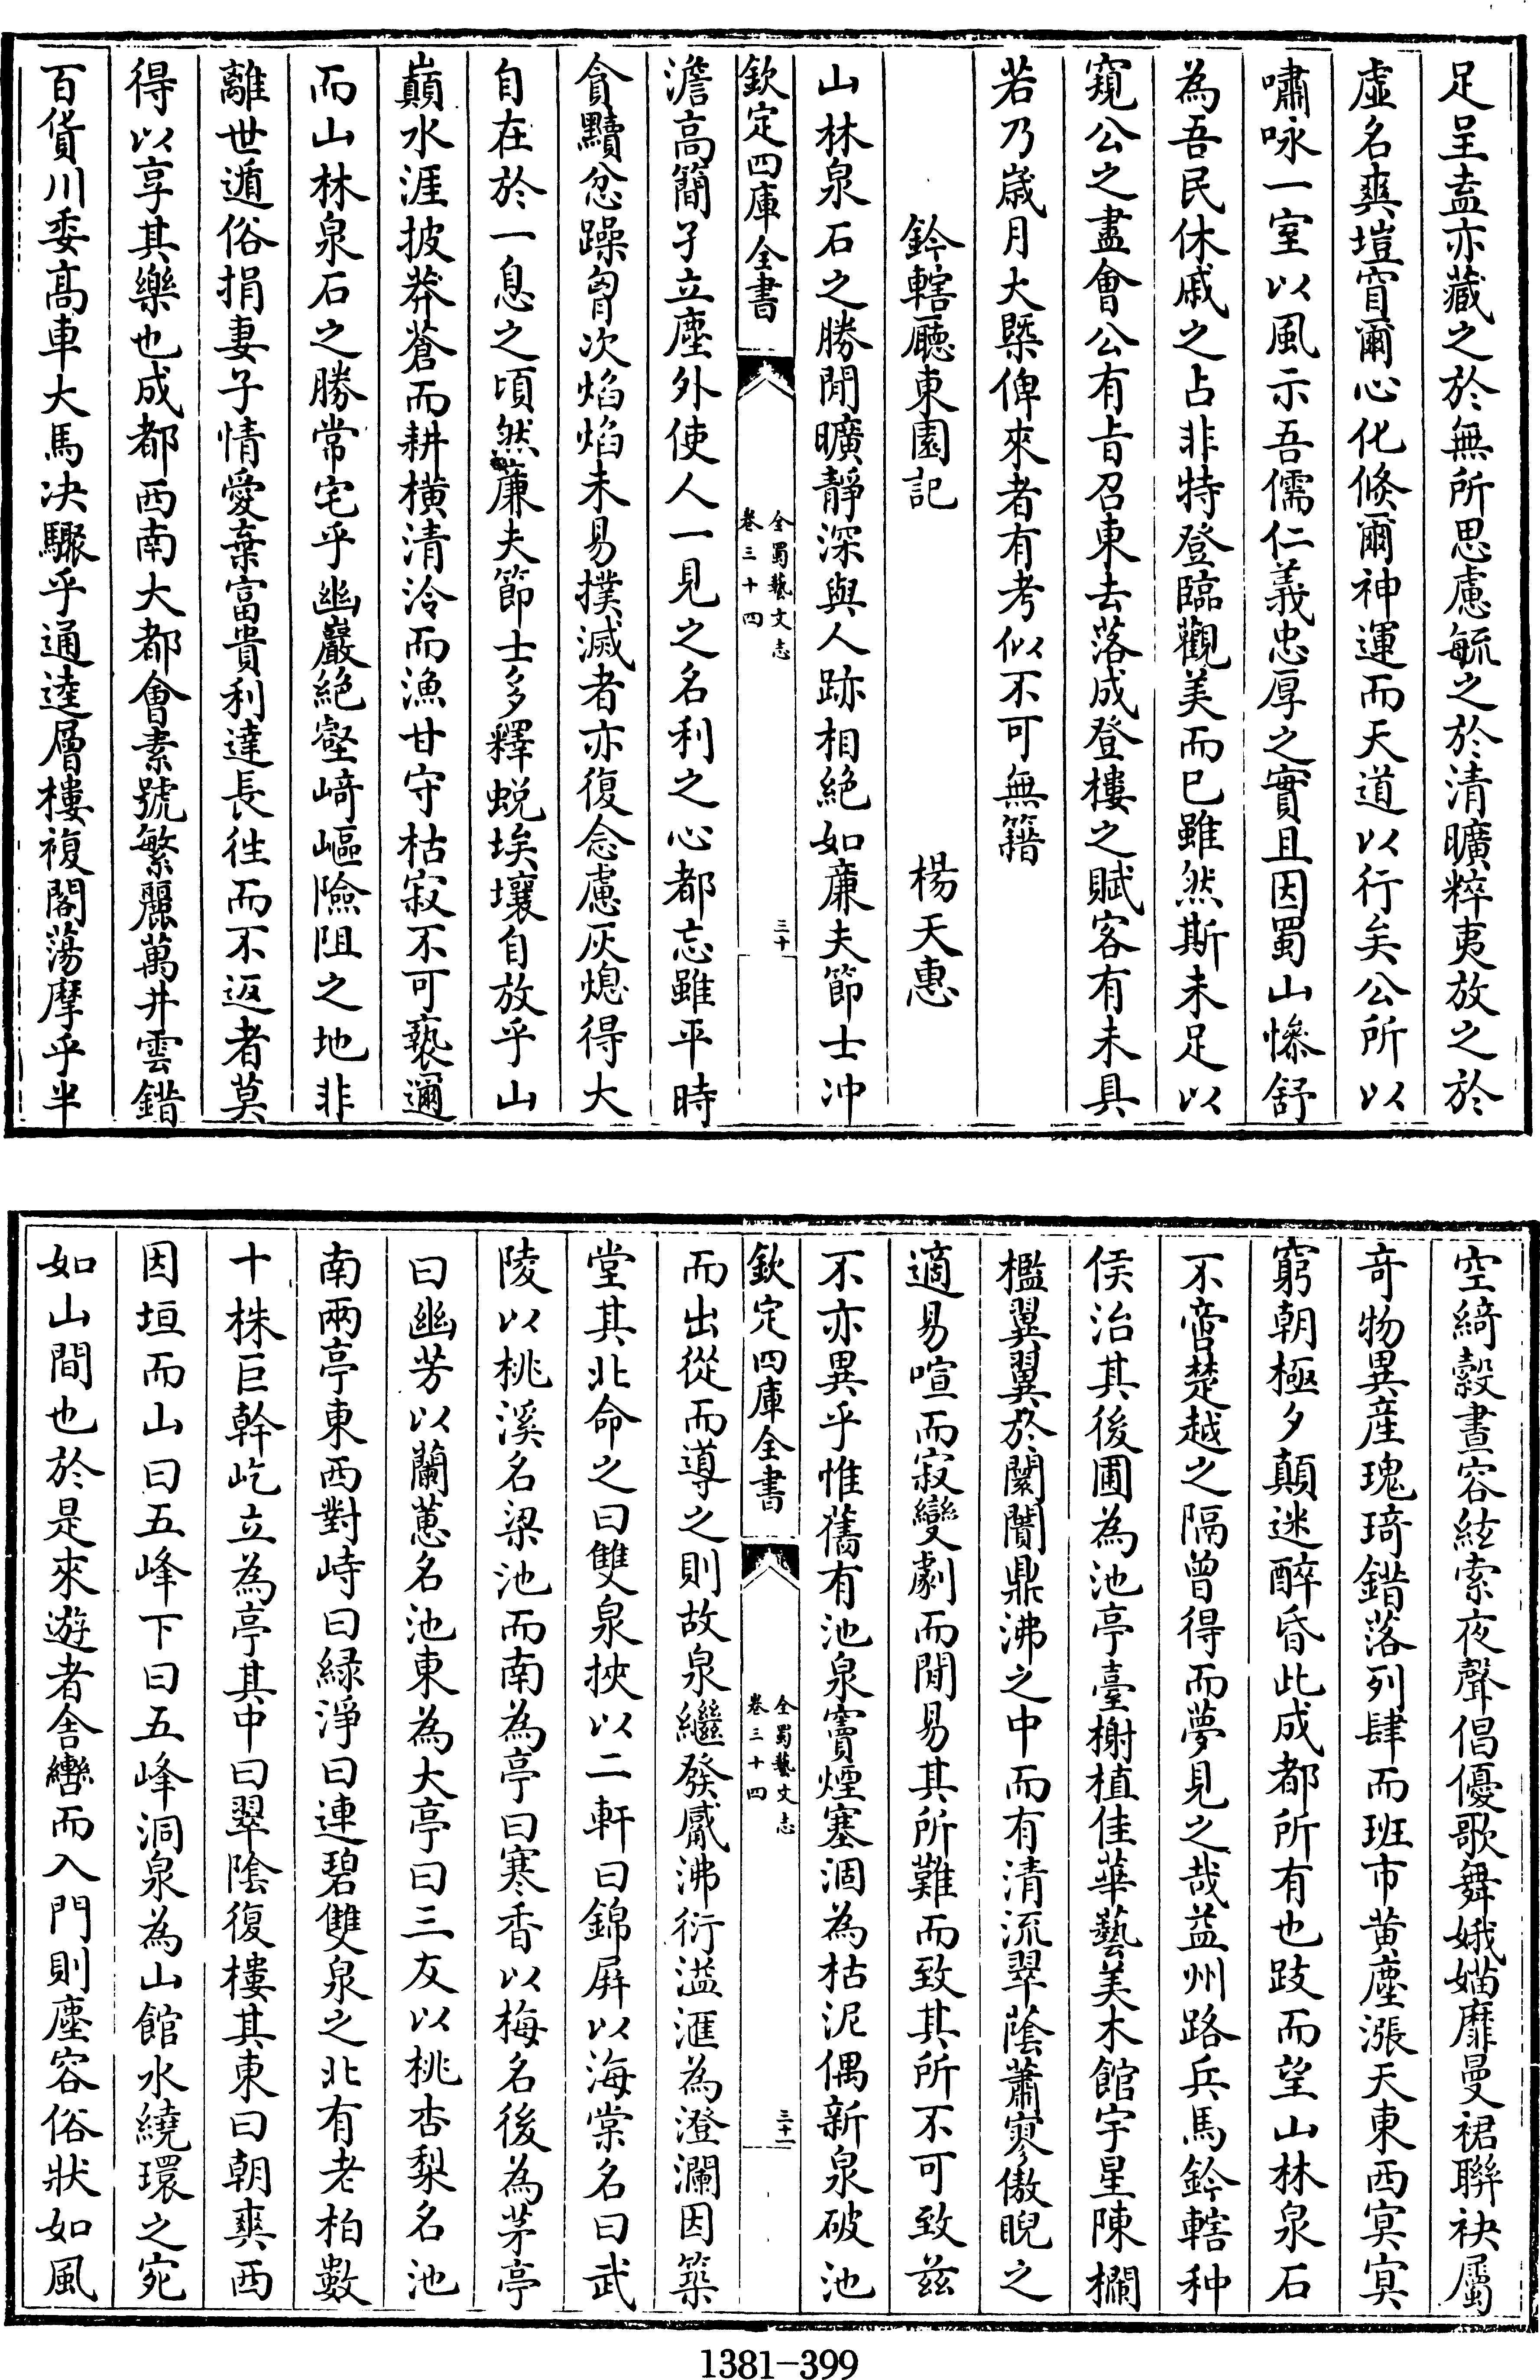 足呈盍亦藏之於無所思慮毓之於清曠粹夷放之於
虛名爽塏窅爾心化倐爾神運而天道以行矣公所以
嘯咏一室以風示吾儒仁義忠厚之實且因蜀山慘舒
為吾民休戚之占非特登臨觀美而已雖然斯未足以
窺公之畫會公有旨召東去落成登樓之賦客有未具
若乃歳月大槩俾來者有考似不可無籍
鈐轄廳東園記　楊天惠
山林泉石之勝閒曠靜深與人跡相絶如亷夫節士冲
欽定四庫全書
全蜀藝文志
卷三十四
三十
澹高簡孑立塵外使人一見之名利之心都忘雖平時
貪黷忿躁胷次焰焰未易撲滅者亦復念慮灰熄得大
自在於一息之頃然亷夫節士多釋蜕埃壤自放乎山
巔水涯披莽蒼而耕橫清泠而漁甘守枯寂不可褻邇
而山林泉石之勝常宅乎幽巖絶壑﨑嶇險阻之地非
離世遁俗捐妻子情愛棄富貴利達長徃而不返者莫
得以享其樂也成都西南大都會素號繁麗萬井雲錯
百貨川委髙車大馬决驟乎通逵層樓複閣蕩摩乎半
空綺縠晝容絃索夜聲倡優歌舞娥媌靡曼裙聯袂屬
竒物異産瑰琦錯落列肆而班市黄塵漲天東西冥冥
窮朝極夕顛迷醉昏此成都所有也跂而望山林泉石
不啻楚越之隔曾得而夢見之哉益州路兵馬鈐轄种
侯治其後圃為池亭臺榭植佳華藝美木館宇星陳欄
檻翼翼於闤闠鼎沸之中而有清流翠蔭蕭寥傲睨之
適易喧而寂變劇而閒易其所難而致其所不可致兹
不亦異乎惟舊有池泉竇煙塞涸為枯泥偶新泉破池
欽定四庫全書
全蜀藝文志
卷三十四
三十一
而出從而導之則故泉繼發觱沸衍溢滙為澄瀾因築
堂其北命之曰雙泉挾以二軒曰錦屏以海棠名曰武
陵以桃溪名梁池而南為亭曰寒香以梅名後為茅亭
曰幽芳以蘭蕙名池東為大亭曰三友以桃杏梨名池
南兩亭東西對峙曰緑淨曰連碧雙泉之北有老柏數
十株巨幹屹立為亭其中曰翠陰復樓其東曰朝爽西
因垣而山曰五峰下曰五峰洞泉為山館水繞環之宛
如山間也於是來遊者舍轡而入門則塵容俗狀如風
1381-399